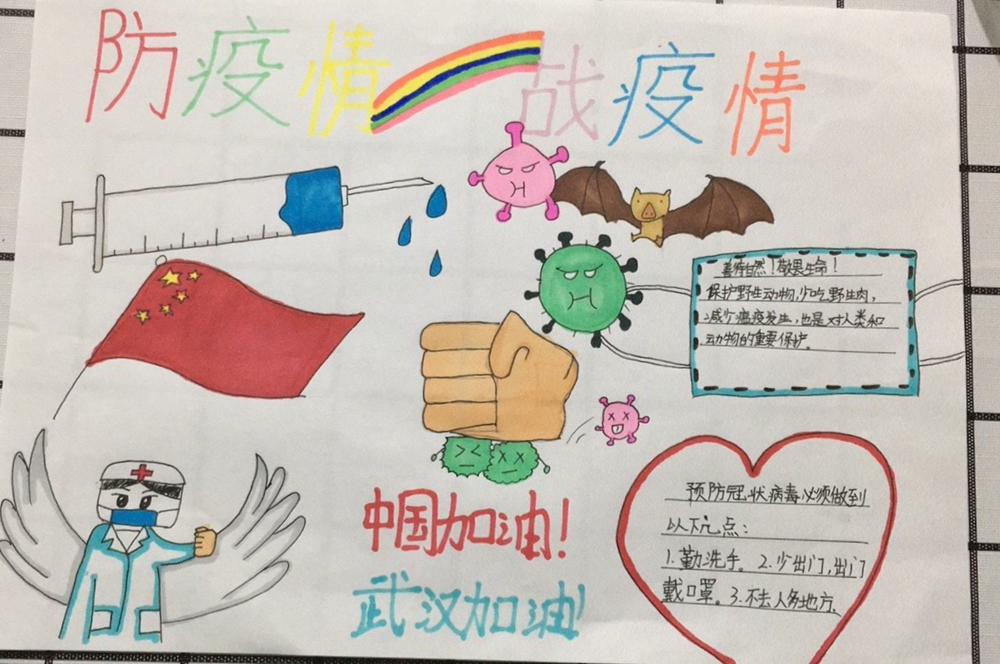 防疫情 战疫情
善待自然！敬畏生命！
保护野生动物，少吃野生肉，
减少瘟疫发生，也是对人类和
动物的重要保护。
中国加油！
武汉加油！
预防冠状病毒必须做到
以下几点：
1.勤洗手。2.少出门，出门
戴口罩。3.不去人多地方。